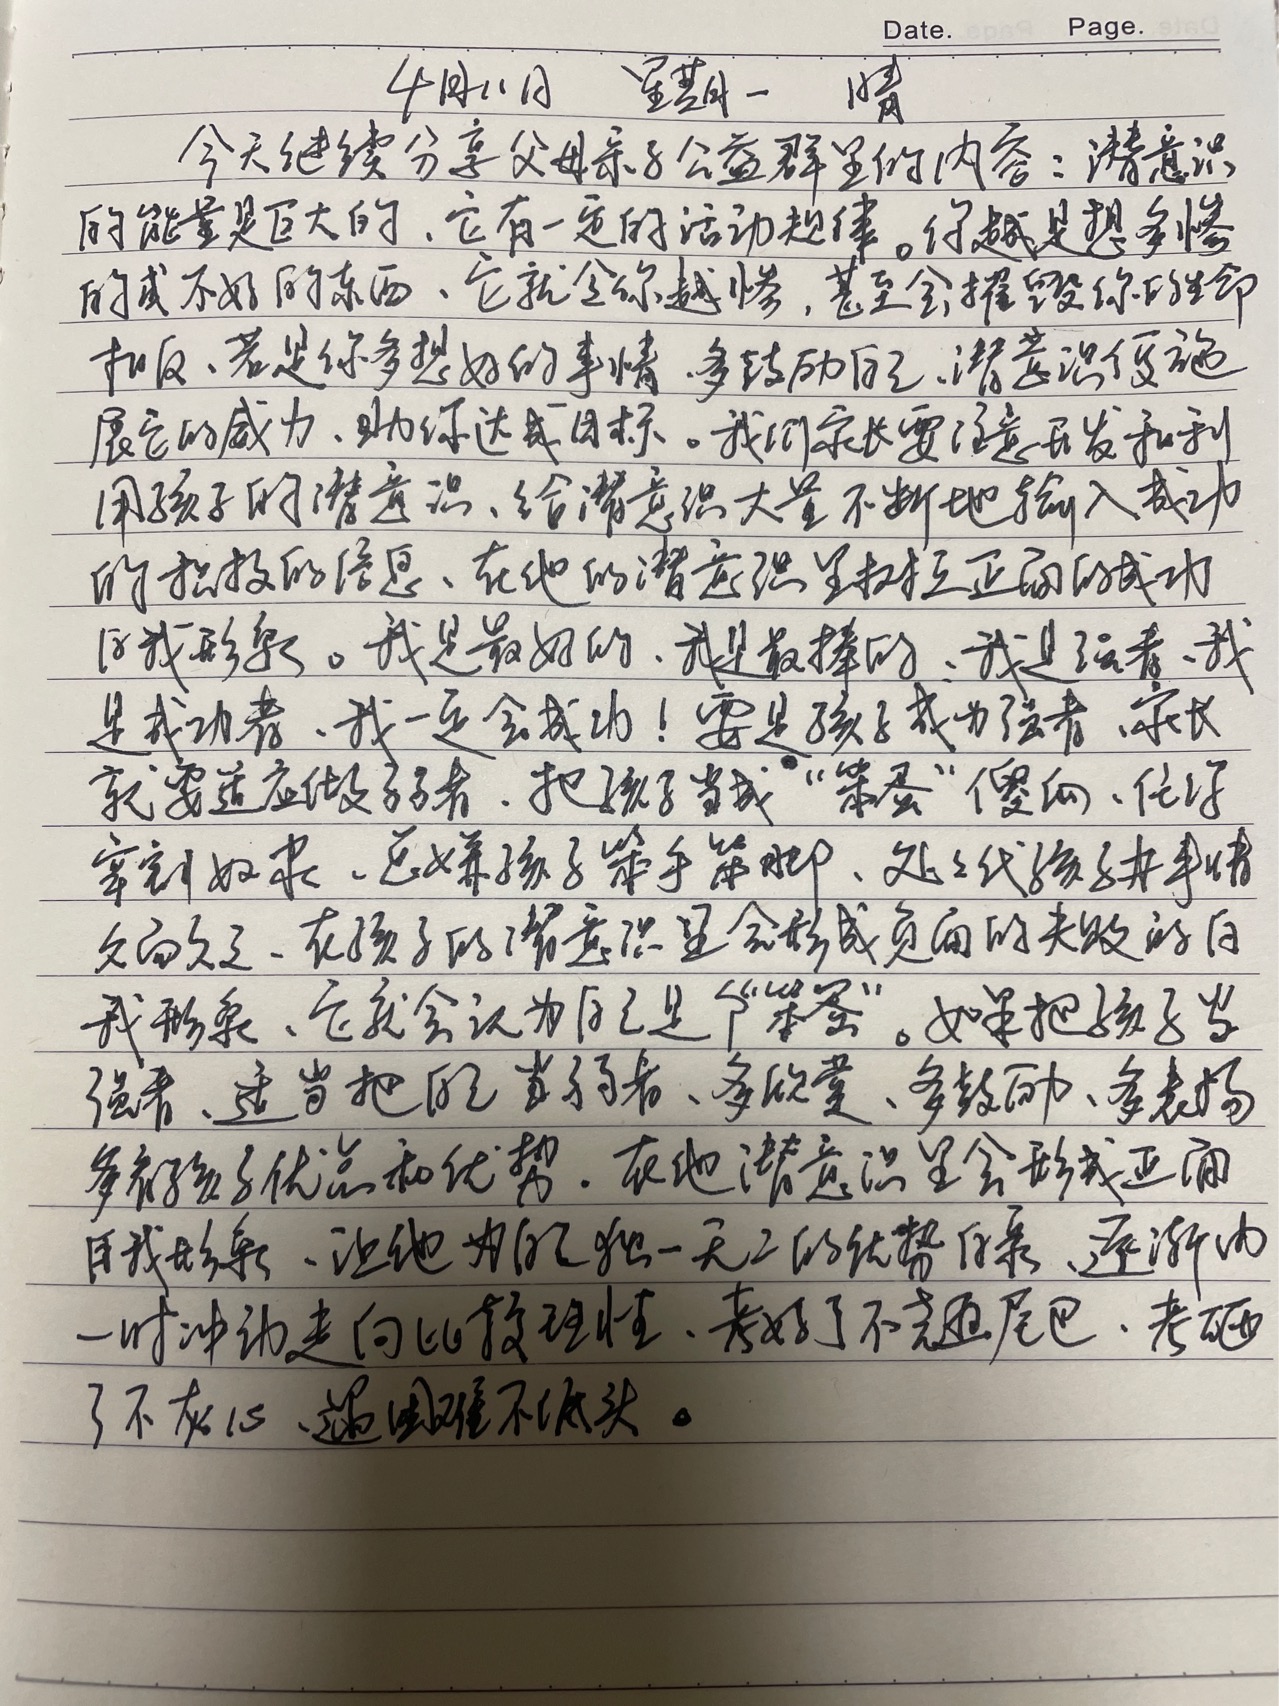 Date. Page.
4月11日 星期一 晴
今天继续分享父母亲子公益群里的内容：潜意识
的能量是巨大的、它有一定的活动规律。你越是想多惨
的或不好的东西、它就会你越惨，甚至会摧毁你的生命
相反、若是你多想好的事情、多鼓励自己、潜意识便施
展它的威力、助你达成目标。我们家长要注意开发和利
用孩子的潜意识、给潜意识大量不断地输入成功
的积极的信息、在他的潜意识里树立正面的成功
自我形象。我是最好的、我是最棒的、我是强者、我
是成功者、我一定会成功！要是孩子成为强者、家长
就要适应做弱者、把孩子当成“笨蛋”傻瓜、任凭
宰割奴隶、总嫌孩子笨手笨脚、处处代孩子办事情
久而久之、在孩子的潜意识里会形成负面的失败的自
我形象、它就会认为自己是个“笨蛋”。如果把孩子当
强者、适当把自己当弱者、多欣赏、多鼓励、多表扬
多看孩子优点和优势。在他潜意识里会形成正面
自我形象、让他为自己独一无二的优势自豪、逐渐由
一时冲动走向比较理性、考好了不翘尾巴、考砸
了不灰心、遇困难不低头。